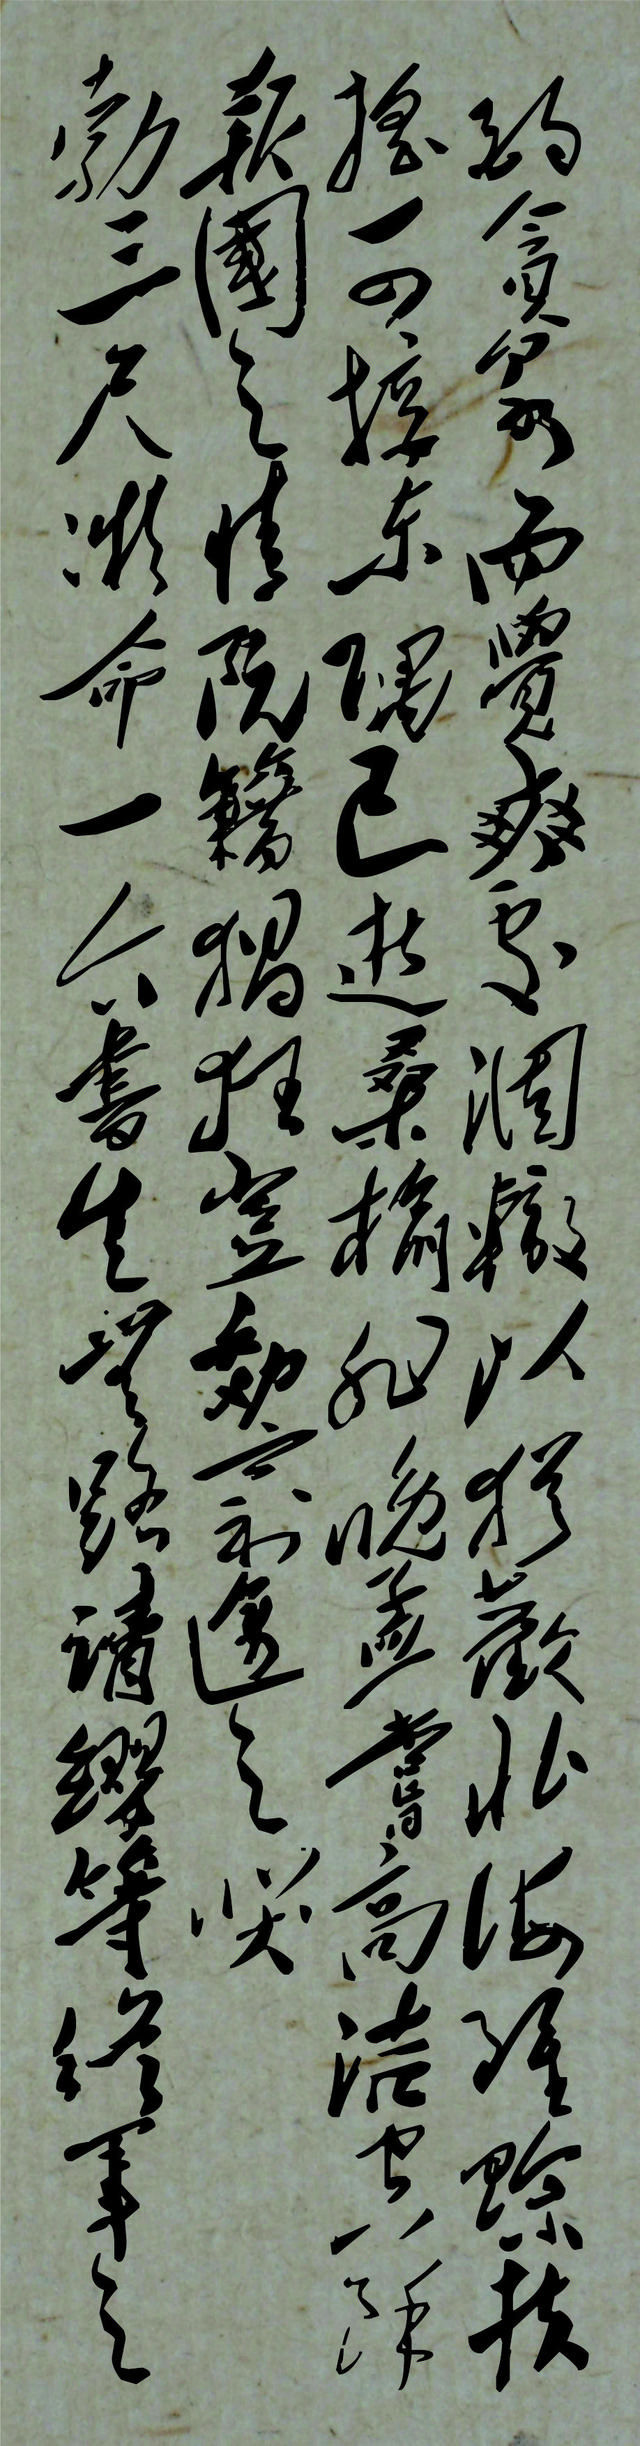 酌貪泉而覺爽處涸轍以猶歡北海雖賒扶
搖可接東隅已逝桑榆非晚孟嘗高潔空餘
報國之情阮籍猖狂豈效窮途之哭
勃三尺微命一介書生無路請纓等終軍之